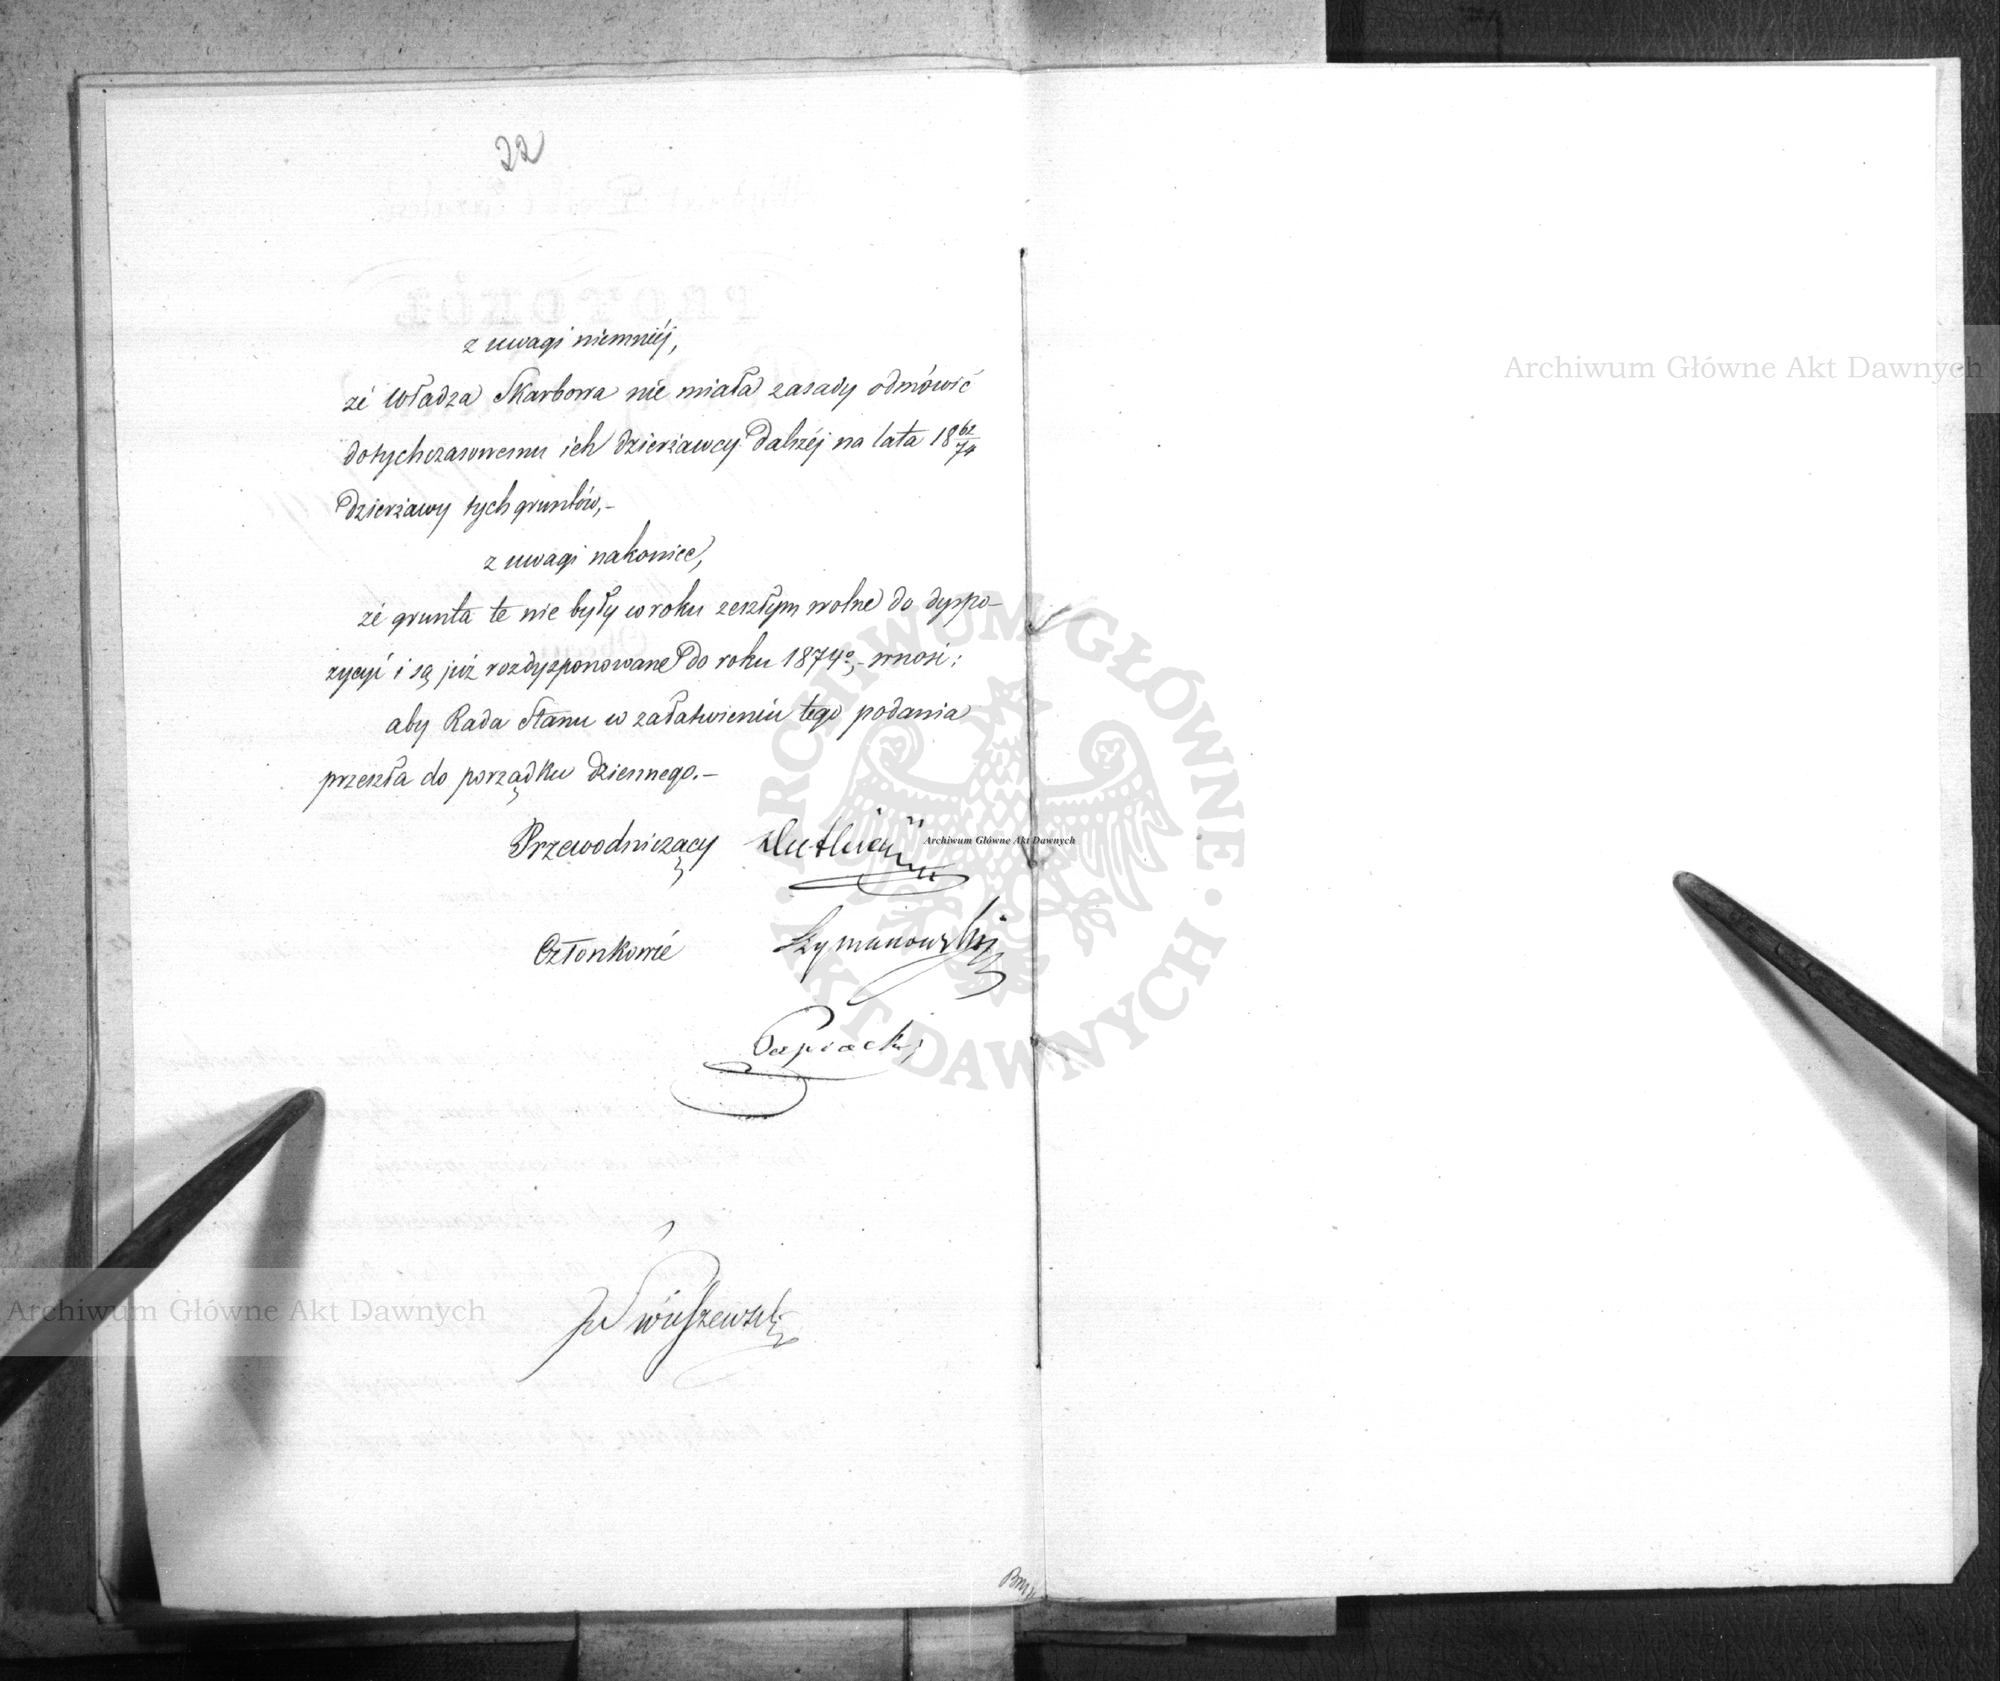 22
z uwagi niemniéj,
że Władza Skarbowa nie miała zasady odmówić
dotychczasowemu ich dzierżawcy daléj na lata 18 62/74
dzierżawy tych gruntów,-
z uwagi nakoniec,
że grunta te nie były w roku zeszłym wolne do dyspo-
zycyi i są już rozdysponowane do roku 1874º,- wnosi:
aby Rada Stanu w załatwieniu tego podania
przeszła do porządku dziennego.-
Przewodniczący
Członkowie Szymanowski
Paprocki
Archiwum Główne Akt Dawnych
Archiwum Główne Akt Dawnych
Archiwum Główne Akt Dawnych
ARCHIWUM GŁÓWNE · AKT DAWNYCH ·